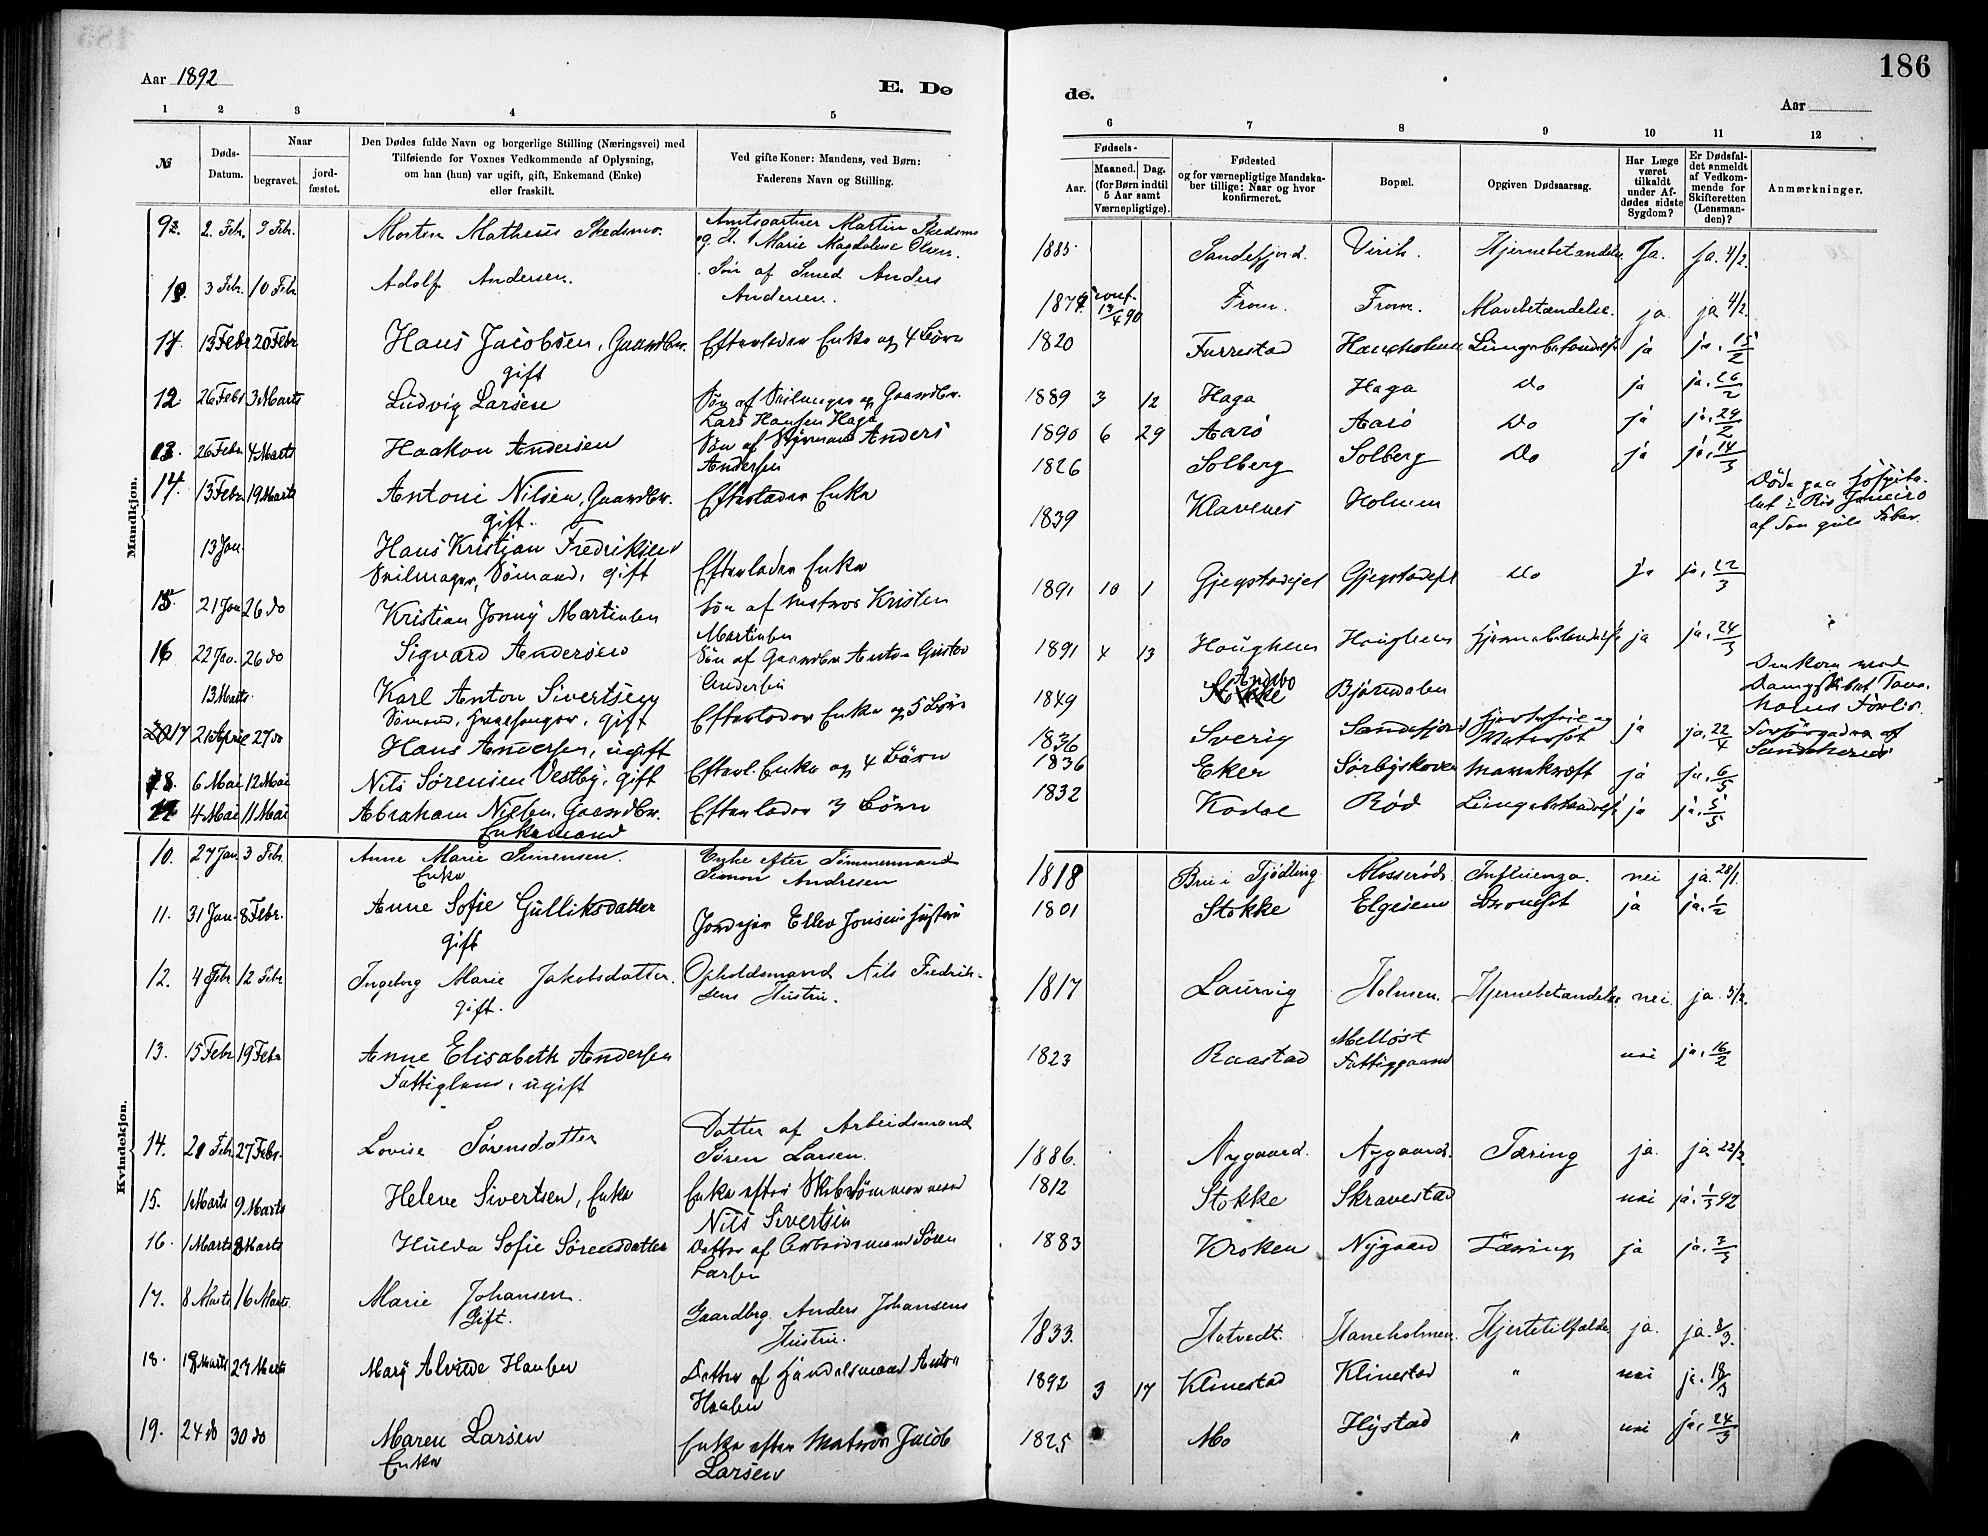 186
Aar 1892
E. Dø
de.
Aar
1 2 3 4 5
6 7 8 9 10 11 12
№
Døds-
Datum.
Naar
begravet.
jord-
fæstet.
Den Dødes fulde Navn og borgerlige Stilling (Næringsvei) med
Tilføiende for Voxnes Vedkommende af Oplysning,
om han (hun) var ugift, gift, Enkemand (Enke)
eller fraskilt.
Ved gifte Koner: Mandens, ved Børn:
Faderens Navn og Stilling.
Fødsels-
Aar.
Maaned. Dag.
(for Børn indtil
5 Aar samt
Værnepligtige).
Fødested
og for værnepligtige Mandska-
ber tillige: Naar og hvor
konfirmeret.
Bopæl.
Opgiven Dødsaarsag.
Har Læge
været
tilkaldt
under Af-
dødes sidste
Sygdom?
Er Dødsfal-
det anmeldt
af Vedkom-
mende for
Skifteretten
(Lensman-
den)?
Anmærkninger.
Mandkjøn.
9. 2. Feb. 9 Feb. Morten Matheus Skedsmo. Amtsgartner Martin Skedsmo
og H. Marie Magdalene Olsen. 1885 Sandefjord. Virik. Hjernebetændelse Ja. ja. 4/2.
10. 3 Feb. 10 Feb Adolf Andersen. Søn af Smed Anders
Andersen. 1874 conf. 13/4 90 From. From. Mavebetændelse. ja ja 4/2.
11. 13 Febr 20 Febr Hans Jacobsen, Gaardbr. Efterlader Enke og 4 Børn 1820 Furrestad Haneholmen Lungebetændelse ja ja. 15/2
gift
12. 26 Feb 3 Marts Ludvig Larsen Søn af Seilmager og Gaardbr.
Lars Hansen Haga 1889 3 12 Haga Haga Do ja ja. 26/2
13. 26 Feb 4 Marts Haakon Andersen Søn af Anders
Andersen 1890 6 29 Aarø Aarø Do ja ja. 29/2
14. 13 Febr 19 Marts Antoni Nilsen, Gaardbr. Efterlader Enke 1826 Solberg Solberg Do ja ja. 14/3
gift.
13 Jan. Hans Kristian Fredriksen
Seilmager, Sømand, gift Efterlader Enke 1839 Klavenes Holmen Døde paa Hospita-
let i Rio Janeiro
af den gule Feber.
15. 21 Jan 26 do Kristian Jonny Martinsen Søn af Matros Kristen
Martinsen 1891 10 1 Gjegstadejet Gjegstadejet Do ja ja. 22/3
16 22 Jan. 26 do Sigvard Andersen Søn af Gaardbr Anton Gustav
Andersen 1891 4 13 Haughem Haughem Hjernebetændelse ja ja. 24/3
13 Marts. Karl Anton Sivertsen
Sømand, gift Efterlader Enke og 5 Børn 1849 Andebo Bjørndalen Omkom med
Dampskibet
Forlis.
17 21 April 27 do Hans Andersen, ugift 1836 Sverig Sandefjord ja ja. 22/4 Forsørgedes af
Sandeherred
18. 6 Mai 12 Mai Nils Sørensen Vestby, gift Efterl. Enke og 4 Børn 1836 Eker Sørbyskoven Mavekræft ja ja. 6/5
4 Mai 11 Mai Abraham Nilsen, Gaardbr. Efterlader 3 Børn 1832 Kodal Rød Lungebetændelse ja ja. 5/5
Enkemand
Kvindekjøn.
10. 27 Jan. 3 Feb. Anne Marie Simensen. Enke efter Tømmermand
Enke Simon Andresen 1818 Bru i Tjødling. Mosserød. Influenza. nei ja 28/1.
11. 31 Jan. 8 Febr. Anne Sofie Gulliksdatter
gift Jordejer Ellev Jonsens Hustru 1801 Stokke Elgesem ja ja. 1/2
12. 4 Feb 12 Feb Ingeborg Marie Jakobsdatter. Opholdsmand Nils Fredrik-
gift. sens Hustru. 1817 Laurvig Holmen. Hjernebetændelse nei. ja 5/2.
13. 15 Febr 19 Febr Anne Elisabeth Andersen
Fattiglem, ugift 1823 Raastad Melløst
Fattiggaard nei ja. 16/2
14. 20 Feb. 27 Febr. Lovise Sørensdatter Datter af Arbeidsmand
Søren Larsen. 1886. Nygaard. Nygaard. Tæring ja. ja 22/2
15. 1 Marts 9 Marts Helene Sivertsen, Enke Enke efter Skibstømmermand
Nils Sivertsen 1812 Stokke Skravestad nei ja. 1/3 92
16. 1 Marts 9 Marts Hulda Sofie Sørensdatter Datter af Arbeidsmand Søren
Larsen 1883 Kroken Nygaard Tæring ja ja. 3/3
17. 8 Marts 16 Marts. Marie Johansen. Gaardbrg. Anders Johansens
Gift. Hustru. 1833. Hotvedt. Haneholmen. Hjertetilfælde ja. ja. 8/3.
18. 18 Marts 23 Marts Mary Alvilde Hansen Datter af Handelsmand Anton
Hansen 1892 3 17 Klinestad Klinestad " nei ja. 18/3
19. 24 do 30 do Maren Larsen Enke efter Matros Jacob
Enke Larsen 1825 Mo Hystad " nei ja. 24/3